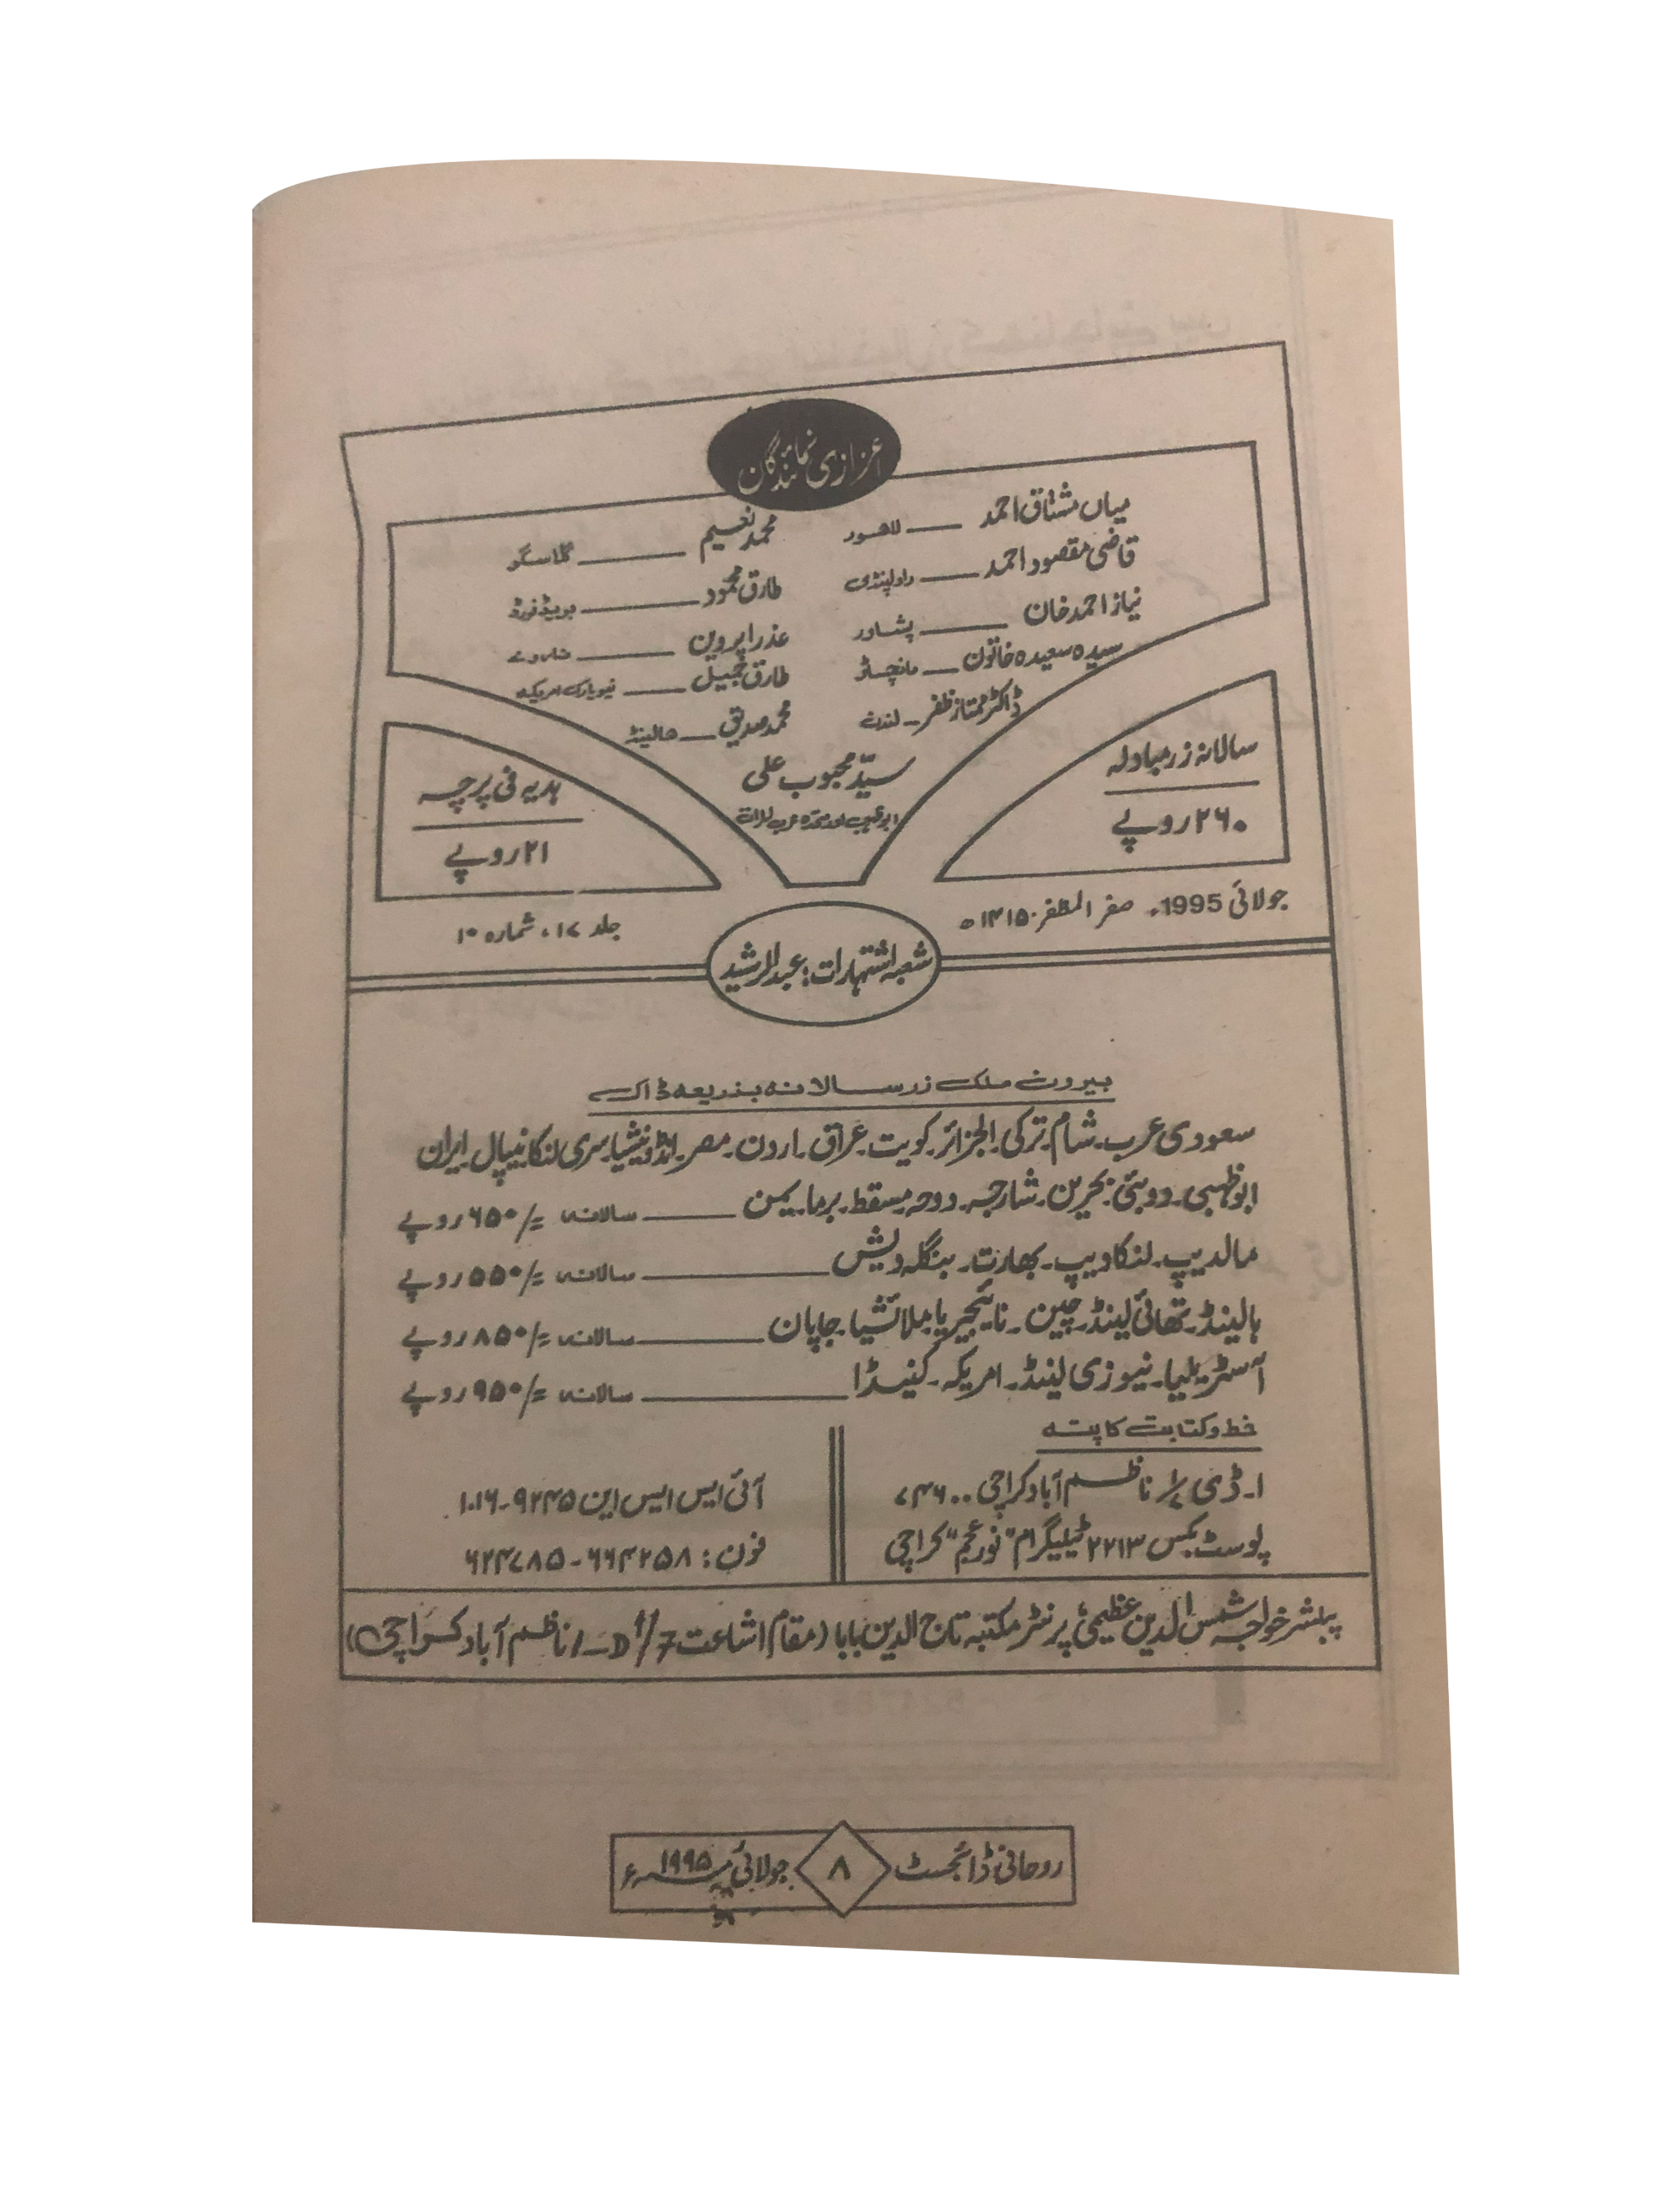 اعزازی نمائندگان
میاں مشتاق احمد ـــ لاہور
قاضی مقصود احمد ـــ راولپنڈی
نیاز احمد خان ـــ پشاور
سیدہ سعیدہ خاتون ـــ مانچسٹر
ڈاکٹر ممتاز ظفر ـ لندن
محمد نعیم ـــ گلاسگو
طارق محمود ـــ بریڈفورڈ
عذرا پروین ـــ ناروے
طارق جمیل ـــ نیویارک امریکہ
محمد صدیق ـــ ہالینڈ
سیّد محبوب علی
ابوظہبی اور متحدہ عرب امارات
سالانہ زر مبادلہ
۲۶۰ روپے
ہدیہ فی پرچہ
۲۱ روپے
جولائی 1995ء صفر المظفر ۱۴۱۵ھ
جلد ۱۷، شمارہ ۱۰
شعبہ اشتہارات: عبدالرشید
بیرون ملک زر سالانہ بذریعہ ڈاک
سعودی عرب۔ شام۔ ترکی۔ الجزائر۔ کویت۔ عراق۔ اردن۔ مصر۔ انڈونیشیا۔ سری لنکا۔ نیپال۔ ایران
ابوظہبی۔ دوبئی۔ بحرین۔ شارجہ۔ دوحہ۔ مسقط۔ برما۔ یمن ـــ سالانہ =/۶۵۰ روپے
مالدیپ۔ لنکادیپ۔ بھارت۔ بنگلہ دیش ـــ سالانہ =/۵۵۰ روپے
ہالینڈ۔ تھائی لینڈ۔ چین۔ نائیجیریا۔ ملائشیا۔ جاپان ـــ سالانہ =/۸۵۰ روپے
آسٹریلیا۔ نیوزی لینڈ۔ امریکہ۔ کینیڈا ـــ سالانہ =/۹۵۰ روپے
خط و کتابت کا پتہ
۱۔ ڈی ۱/۷ ناظم آباد کراچی ۷۴۶۰۰
پوسٹ بکس ۲۲۱۳ ٹیلیگرام "نور عجم" کراچی
آئی ایس ایس این ۹۲۴۵۔۱۰۱۶
فون: ۶۶۴۲۵۸۔۶۲۴۷۸۵
پبلشر خواجہ شمس الدین عظیمی؛ پرنٹر مکتبہ تاج الدین بابا (مقام اشاعت 1-D 1/7 ناظم آباد کراچی)
روحانی ڈائجسٹ ۸ جولائی ۱۹۹۵ء